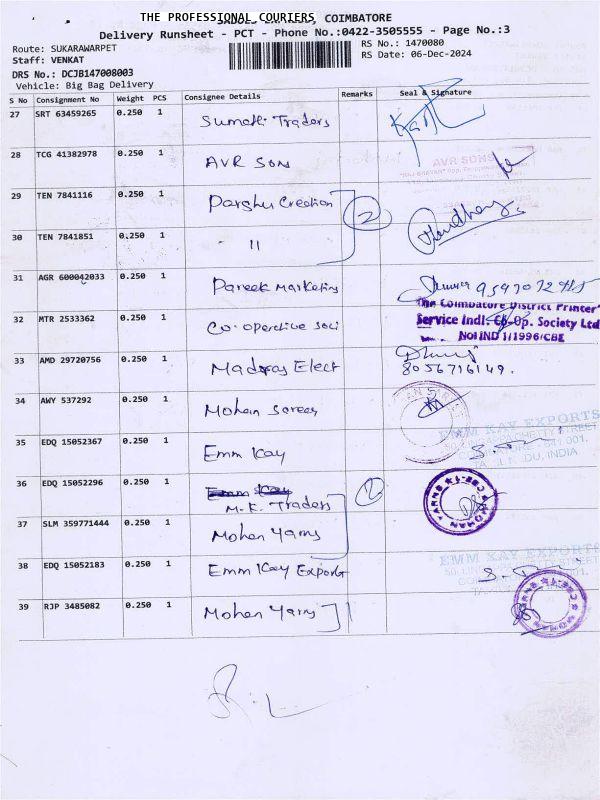 THE PROFESSIONAL COURIERS, COIMBATORE
Delivery Runsheet - PCT - Phone No.:0422-3505555 - Page No.:3
Route: SUKARAWARPET
RS No.: 1470080
Staff: VENKAT
RS Date: 06-Dec-2024
DRS No.: DCJB147008003
Vehicle: Big Bag Delivery
S No Consignment No Weight PCS Consignee Details Remarks Seal & Signature
27 SRT 63459265 0.250 1 Sumathi Traders
28 TCG 41382978 0.250 1 AVR SON
AVR SONS
29 TEN 7841116 0.250 1 Parshu Creation
2
30 TEN 7841851 0.250 1 "
31 AGR 600042033 0.250 1 Pareek Marketing
The Coimbatore District Printer's
32 MTR 2533362 0.250 1 Co-operative Soci
Service Indl. Co-Op. Society Ltd
No IND 1/1996/CBE
33 AMD 29720756 0.250 1 Madras Elect
8056716149.
34 AWY 537292 0.250 1 Mohan Sarees
EMM KAY EXPORTS
35 EDQ 15052367 0.250 1 Emm Kay
36 EDQ 15052296 0.250 1 Emm Kay
M.K. Traders
2
37 SLM 359771444 0.250 1 Mohan Yarns
MOHAN YARNS CBE-1
38 EDQ 15052183 0.250 1 Emm Kay Export
EMM KAY EXPORTS
39 RJP 3485082 0.250 1 Mohan Yarns